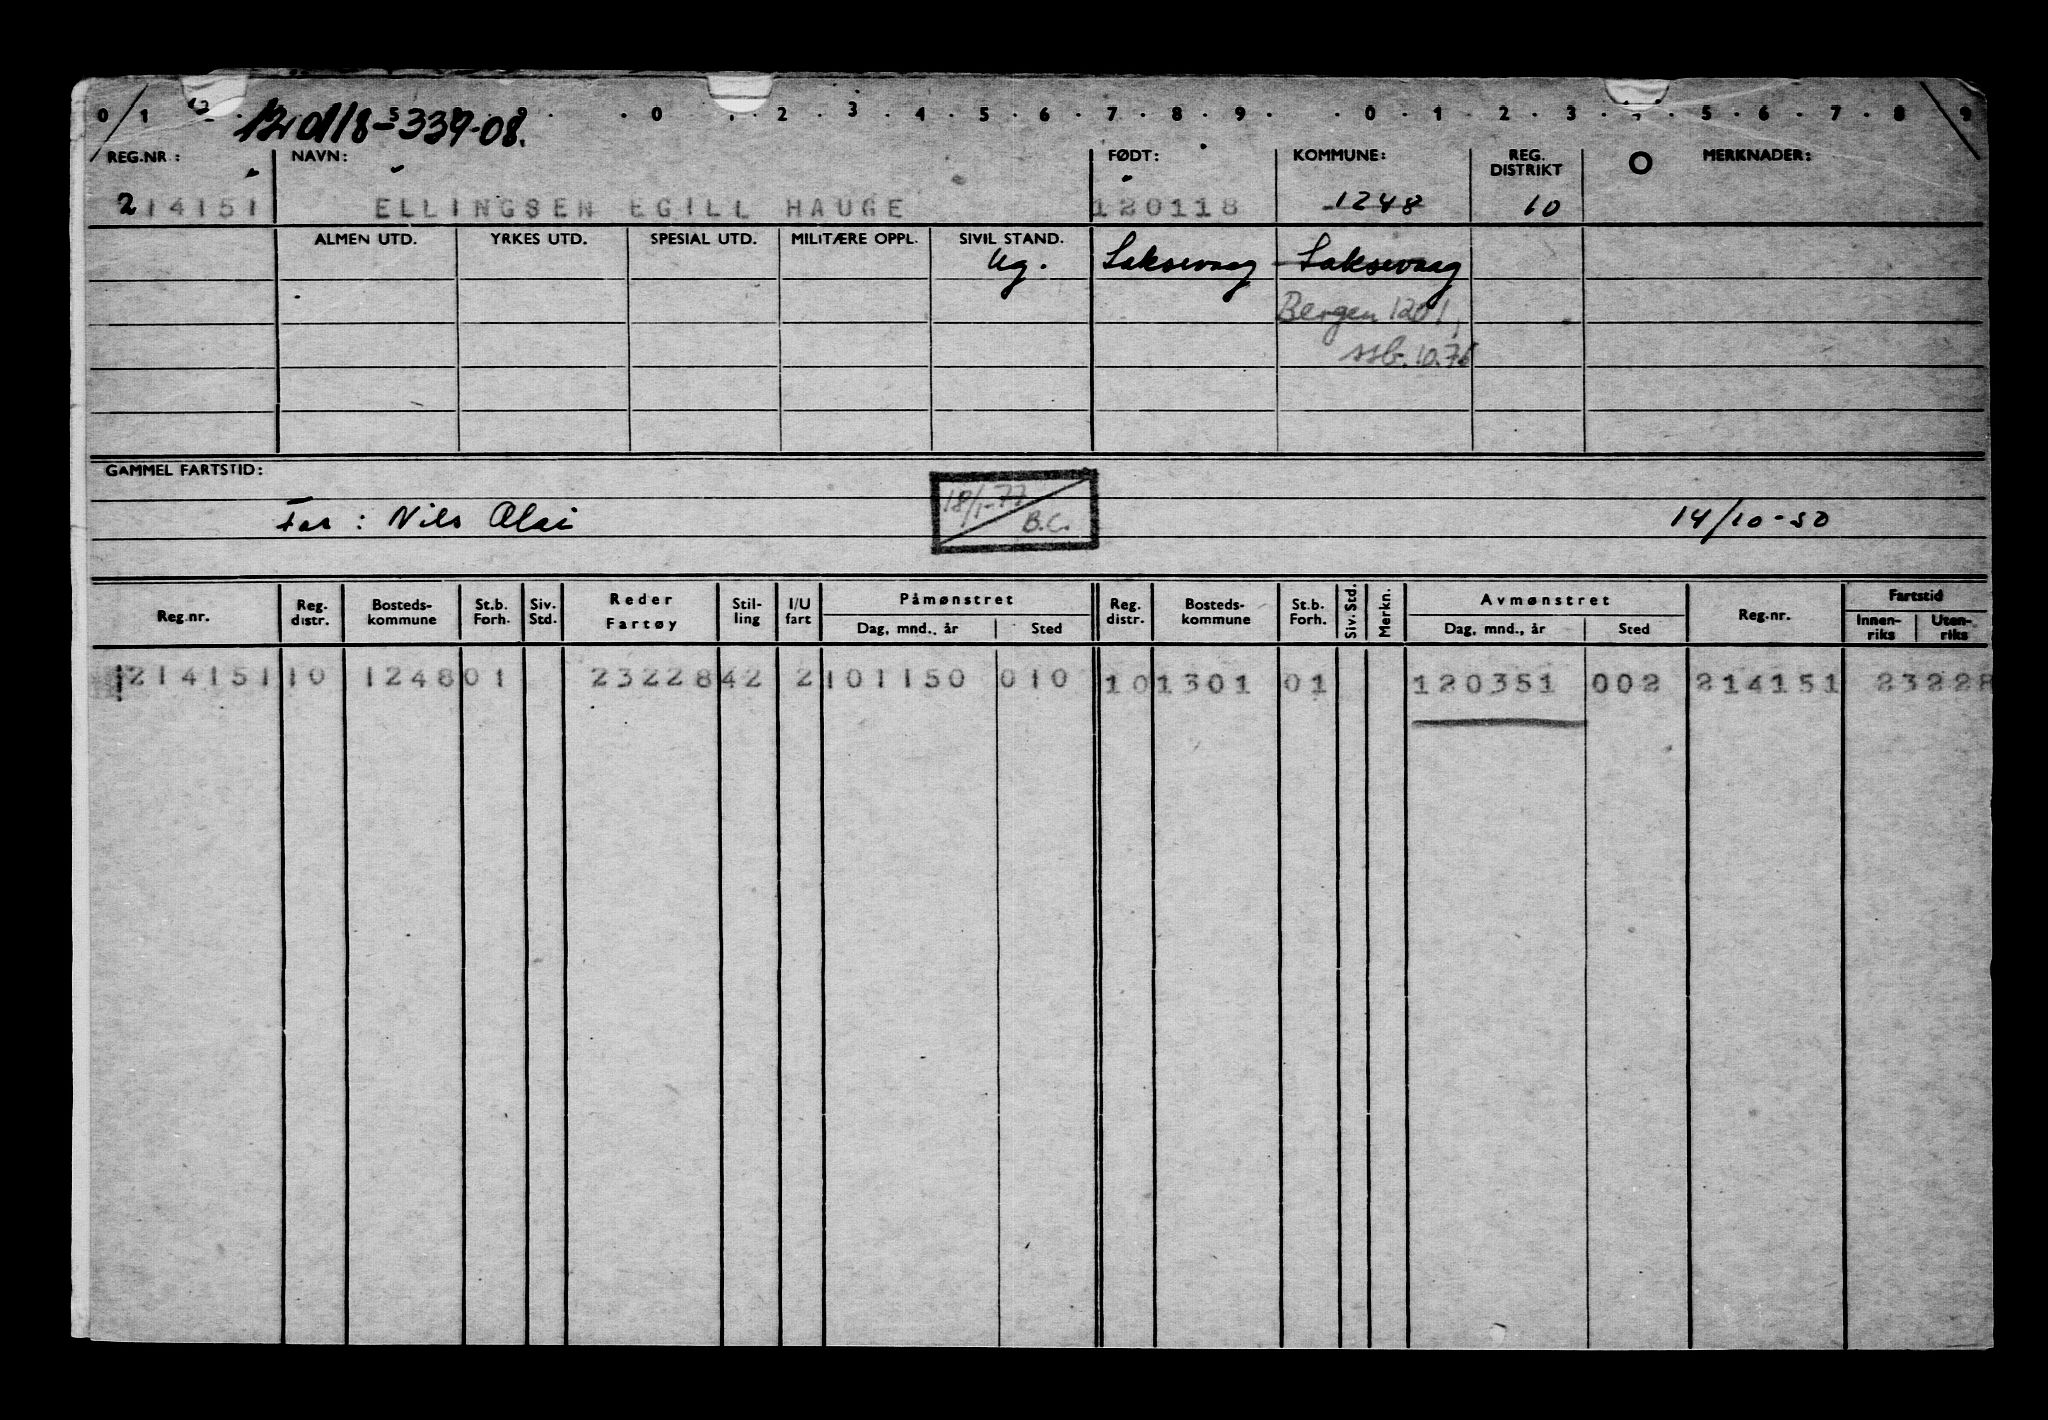 0 1 2 0 1 2 3 4 5 6 7 8 9 0 1 2 3 5 6 7 8 9
120118-33908.
REG.NR: NAVN: FØDT: KOMMUNE: REG. DISTRIKT MERKNADER:
214151 ELLINGSEN EGILL HAUGE 120118 1248 10
ALMEN UTD. YRKES UTD. SPESIAL UTD. MILITÆRE OPPL. SIVIL STAND.
Ug. Laksevaag Laksevaag
Bergen 1201,
ssb. 10.76
GAMMEL FARTSTID:
18/1-77
B.C.
Far: Nils Olai 14/10-50
Reg.nr. Reg. distr. Bosteds-kommune St.b. Forh. Siv. Std. Reder Fartøy Stil-ling I/U fart Påmønstret Reg. distr. Bosteds-kommune St.b. Forh. Siv. Std. Merkn. Avmønstret Reg.nr. Fartstid
Dag, mnd., år Sted Dag, mnd., år Sted Innen-riks Uten-riks
214151 10 1248 01 23228 42 2 101150 010 10 1301 01 120351 002 214151 23228